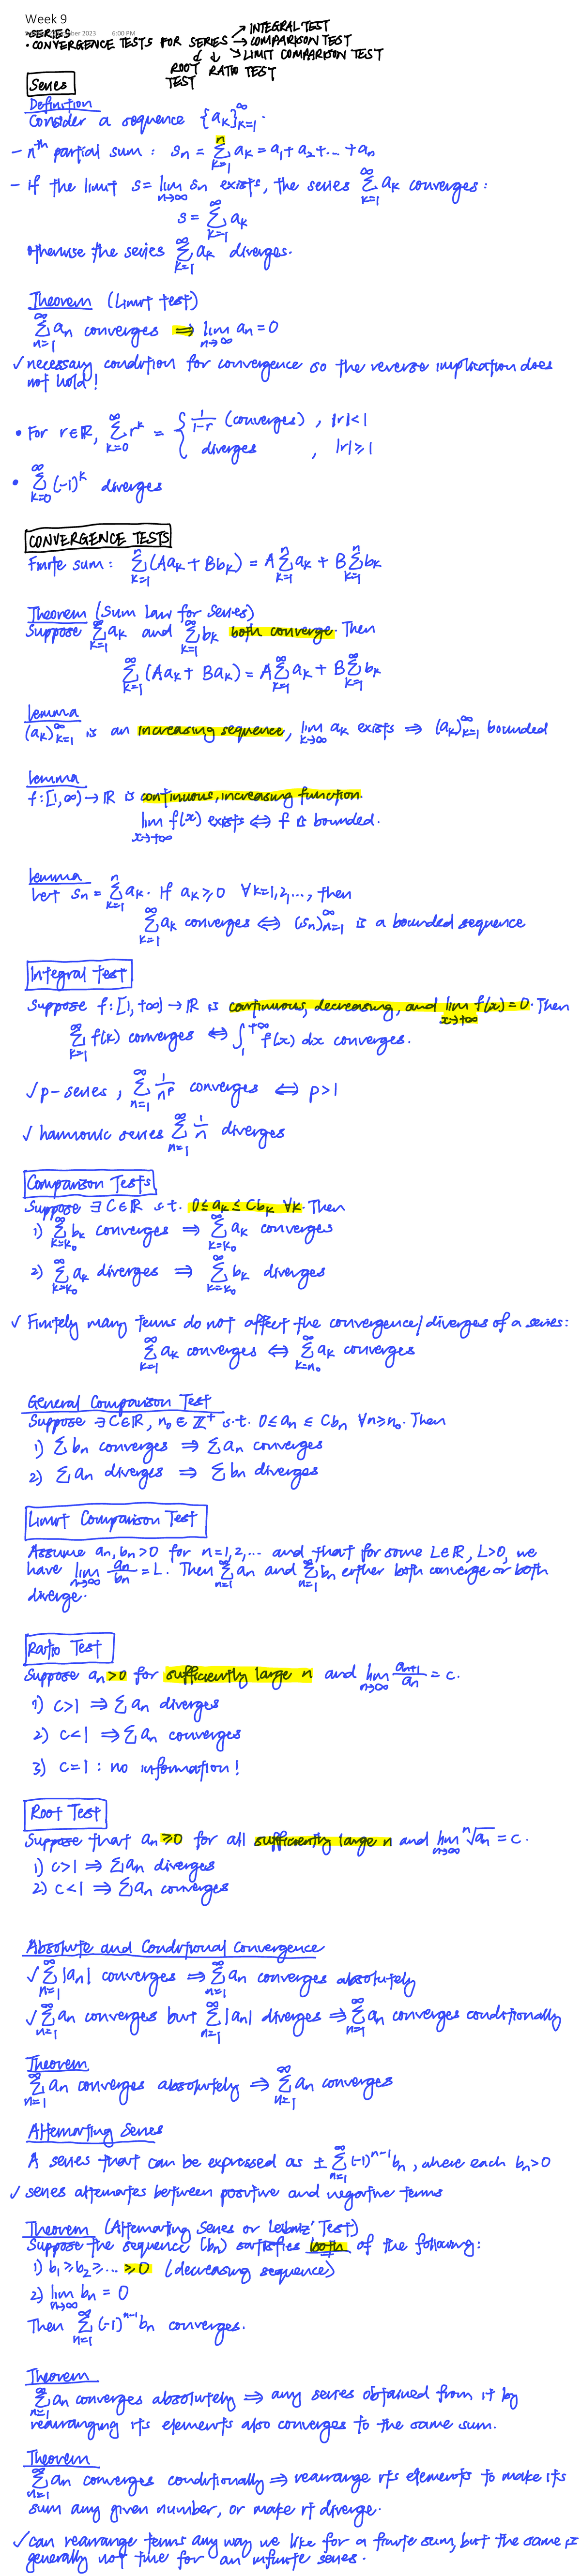 Week 9
6:00 PM
• SERIES
• CONVERGENCE TESTS FOR SERIES → INTEGRAL TEST
→ COMPARISON TEST
→ LIMIT COMPARISON TEST
ROOT TEST
RATIO TEST
Series
Definition
Consider a sequence {a_k}_{k=1}^∞.
- n^th partial sum: s_n = Σ_{k=1}^n a_k = a_1 + a_2 + ... + a_n
- If the limit s = lim_{n→∞} s_n exists, the series Σ_{k=1}^∞ a_k converges:
s = Σ_{k=1}^∞ a_k
otherwise the series Σ_{k=1}^∞ a_k diverges.
Theorem (Limit test)
Σ_{n=1}^∞ a_n converges ⇒ lim_{n→∞} a_n = 0
✓ necessary condition for convergence so the reverse implication does
not hold!
• For r∈ℝ, Σ_{k=0}^∞ r^k = { 1/(1-r) (converges), |r|<1
diverges, |r|≥1
• Σ_{k=0}^∞ (-1)^k diverges
CONVERGENCE TESTS
Finite sum: Σ_{k=1}^n (Aa_k + Bb_k) = A Σ_{k=1}^n a_k + B Σ_{k=1}^n b_k
Theorem (Sum Law for Series)
Suppose Σ_{k=1}^∞ a_k and Σ_{k=1}^∞ b_k both converge. Then
Σ_{k=1}^∞ (Aa_k + Ba_k) = A Σ_{k=1}^∞ a_k + B Σ_{k=1}^∞ b_k
Lemma
(a_k)_{k=1}^∞ is an increasing sequence, lim_{k→∞} a_k exists ⇒ (a_k)_{k=1}^∞ bounded
Lemma
f:[1,∞)→ℝ is continuous, increasing function.
lim_{x→+∞} f(x) exists ⇔ f is bounded.
Lemma
Let s_n = Σ_{k=1}^n a_k. If a_k ≥ 0 ∀k=1,2,..., then
Σ_{k=1}^∞ a_k converges ⇔ (s_n)_{n=1}^∞ is a bounded sequence
Integral Test
Suppose f:[1,+∞)→ℝ is continuous, decreasing, and lim_{x→+∞} f(x) = 0. Then
Σ_{k=1}^∞ f(k) converges ⇔ ∫_1^{+∞} f(x) dx converges.
✓ p-series, Σ_{n=1}^∞ 1/n^p converges ⇔ p>1
✓ harmonic series Σ_{n=1}^∞ 1/n diverges
Comparison Tests
Suppose ∃C∈ℝ s.t. 0≤a_k≤Cb_k ∀k. Then
1) Σ_{k=k_0}^∞ b_k converges ⇒ Σ_{k=k_0}^∞ a_k converges
2) Σ_{k=k_0}^∞ a_k diverges ⇒ Σ_{k=k_0}^∞ b_k diverges
✓ Finitely many terms do not affect the convergence/diverges of a series:
Σ_{k=1}^∞ a_k converges ⇔ Σ_{k=n_0}^∞ a_k converges
General Comparison Test
Suppose ∃C∈ℝ, n_0∈ℤ^+ s.t. 0≤a_n≤Cb_n ∀n≥n_0. Then
1) Σ b_n converges ⇒ Σ a_n converges
2) Σ a_n diverges ⇒ Σ b_n diverges
Limit Comparison Test
Assume a_n, b_n > 0 for n=1,2,... and that for some L∈ℝ, L>0, we
have lim_{n→∞} a_n/b_n = L. Then Σ_{n=1}^∞ a_n and Σ_{n=1}^∞ b_n either both converge or both
diverge.
Ratio Test
Suppose a_n>0 for sufficiently large n and lim_{n→∞} a_{n+1}/a_n = c.
1) c>1 ⇒ Σ a_n diverges
2) c<1 ⇒ Σ a_n converges
3) c=1 : no information!
Root Test
Suppose that a_n≥0 for all sufficiently large n and lim_{n→∞} ⁿ√a_n = c.
1) c>1 ⇒ Σ a_n diverges
2) c<1 ⇒ Σ a_n converges
Absolute and Conditional Convergence
✓ Σ_{n=1}^∞ |a_n| converges ⇒ Σ_{n=1}^∞ a_n converges absolutely
✓ Σ_{n=1}^∞ a_n converges but Σ_{n=1}^∞ |a_n| diverges ⇒ Σ_{n=1}^∞ a_n converges conditionally
Theorem
Σ_{n=1}^∞ a_n converges absolutely ⇒ Σ_{n=1}^∞ a_n converges
Alternating Series
A series that can be expressed as ± Σ_{n=1}^∞ (-1)^{n-1} b_n, where each b_n>0
✓ series alternates between positive and negative terms
Theorem (Alternating Series or Leibniz' Test)
Suppose the sequence (b_n) satisfies both of the following:
1) b_1≥b_2≥... ≥0 (decreasing sequence)
2) lim_{n→∞} b_n = 0
Then Σ_{n=1}^∞ (-1)^{n-1} b_n converges.
Theorem
Σ_{n=1}^∞ a_n converges absolutely ⇒ any series obtained from it by
rearranging its elements also converges to the same sum.
Theorem
Σ_{n=1}^∞ a_n converges conditionally ⇒ rearrange its elements to make its
sum any given number, or make it diverge.
✓ can rearrange terms any way we like for a finite sum, but the same is
generally not true for an infinite series.